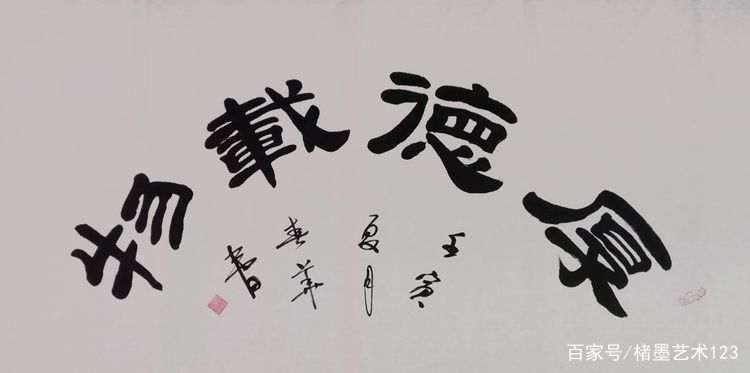 厚德載物
壬寅
夏月
春華
書
百家号/楮墨艺术123